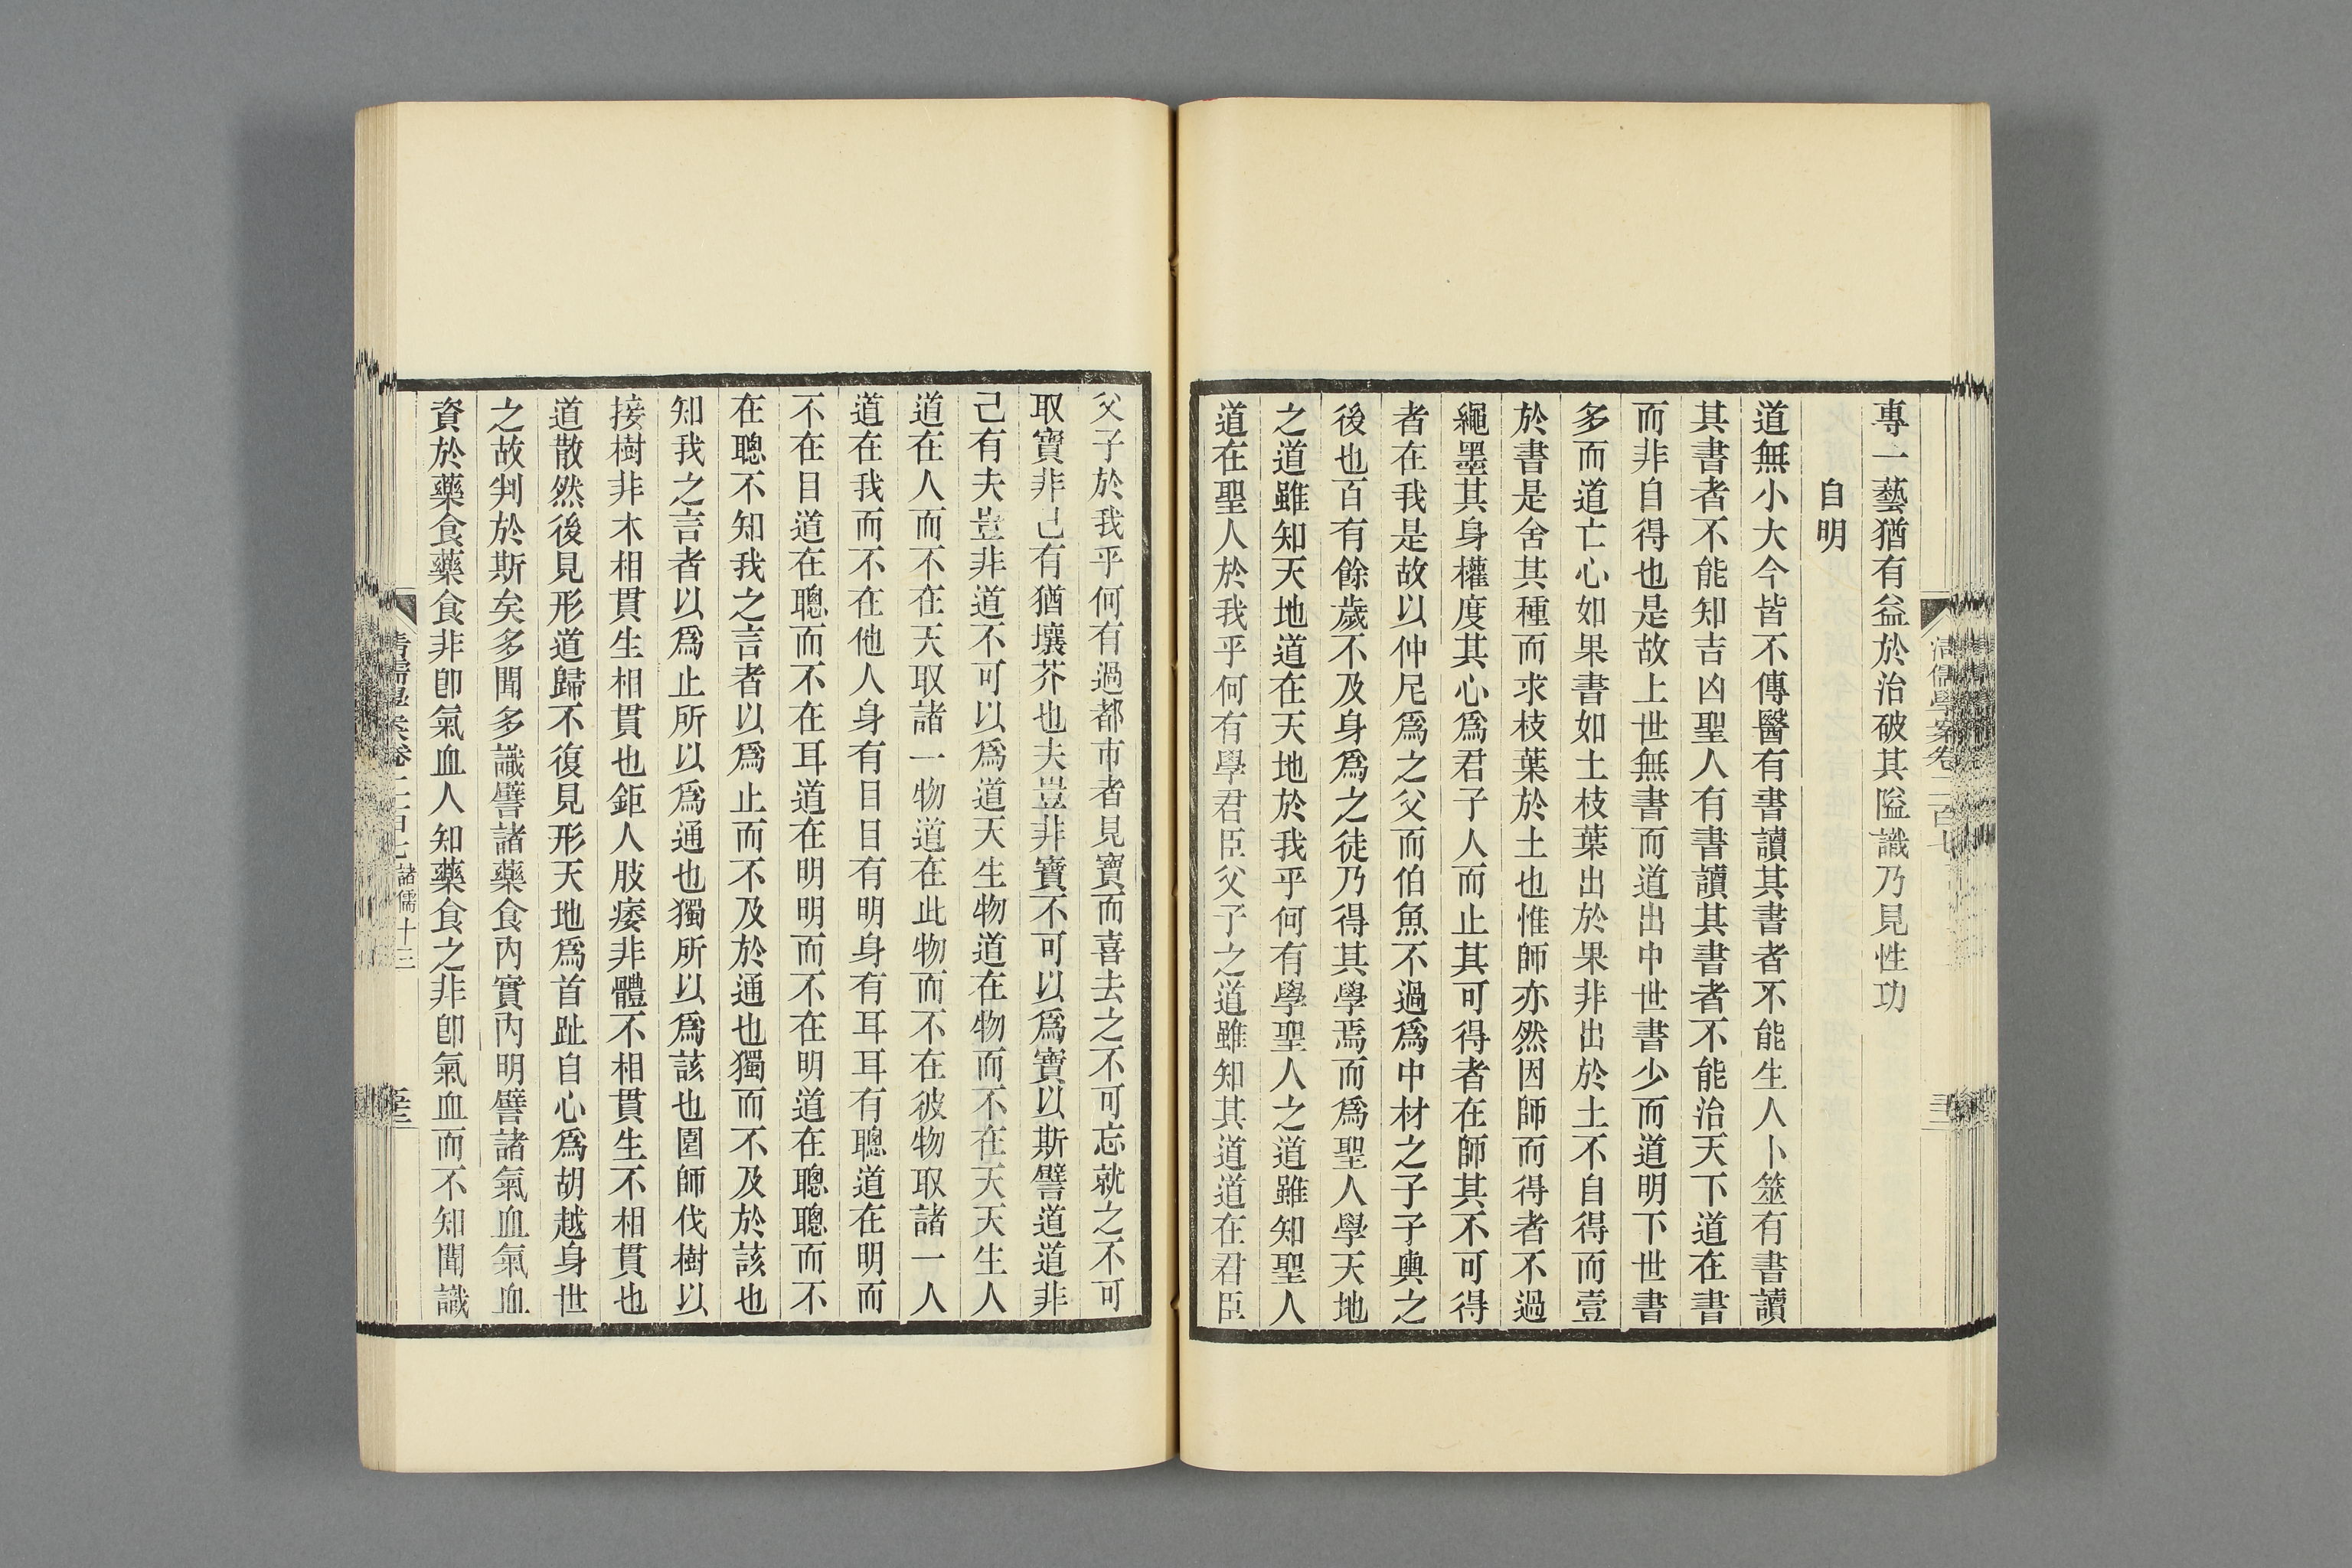 專一藝猶有益於治破其隘識乃見性功
自明
道無小大今皆不傳醫有書讀其書者不能生人卜筮有書讀
其書者不能知吉凶聖人有書讀其書者不能治天下道在書
而非自得也是故上世無書而道出中世書少而道明下世書
多而道亡心如果書如土枝葉出於果非出於土不自得而壹
於書是舍其種而求枝葉於土也惟師亦然因師而得者不過
繩墨其身權度其心爲君子人而止其可得者在師其不可得
者在我是故以仲尼爲之父而伯魚不過爲中材之子子輿之
後也百有餘歲不及身爲之徒乃得其學焉而爲聖人學天地
之道雖知天地道在天地於我乎何有學聖人之道雖知聖人
道在聖人於我乎何有學君臣父子之道雖知其道道在君臣
父子於我乎何有過都市者見寶而喜去之不可忘就之不可
取寶非己有猶壤芥也夫豈非寶不可以爲寶以斯譬道道非
己有夫豈非道不可以爲道天生物道在物而不在天天生人
道在人而不在天取諸一物道在此物而不在彼物取諸一人
道在我而不在他人身有目目有明身有耳耳有聰道在明而
不在目道在聰而不在耳道在明明而不在明道在聰聰而不
在聰不知我之言者以爲止而不及於通也獨而不及於該也
知我之言者以爲止所以爲通也獨所以爲該也圃師伐樹以
接樹非木相貫生相貫也鉅人肢痿非體不相貫生不相貫也
道散然後見形道歸不復見形天地爲首趾自心爲胡越身世
之故判於斯矣多聞多識譬諸藥食內實內明譬諸氣血氣血
資於藥食藥食非卽氣血人知藥食之非卽氣血而不知聞識
清儒學案卷二百七 諸儒十三